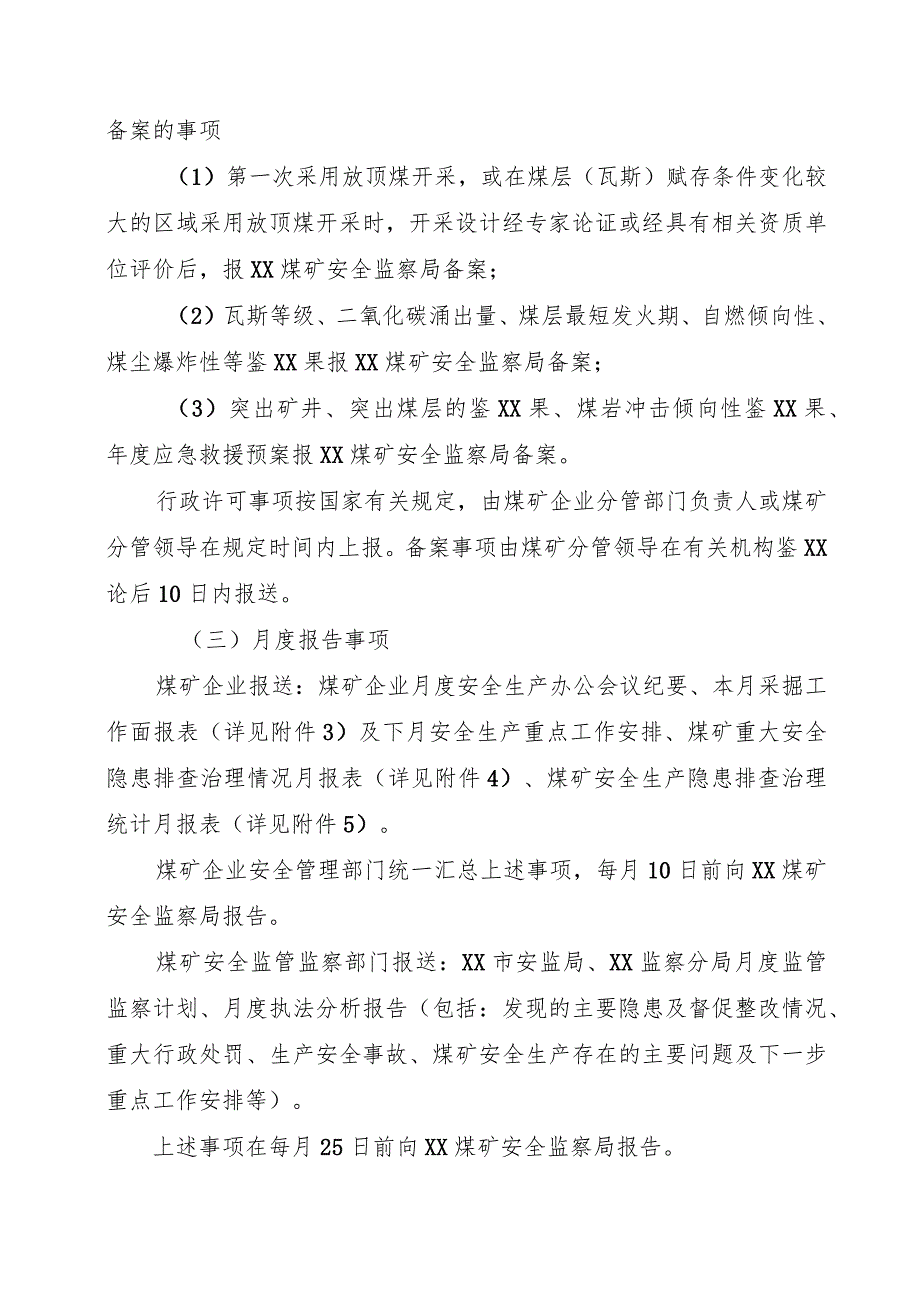 备案的事项
（1）第一次采用放顶煤开采，或在煤层（瓦斯）赋存条件变化较
大的区域采用放顶煤开采时，开采设计经专家论证或经具有相关资质单
位评价后，报 XX 煤矿安全监察局备案；
（2）瓦斯等级、二氧化碳涌出量、煤层最短发火期、自燃倾向性、
煤尘爆炸性等鉴 XX 果报 XX 煤矿安全监察局备案；
（3）突出矿井、突出煤层的鉴 XX 果、煤岩冲击倾向性鉴 XX 果、
年度应急救援预案报 XX 煤矿安全监察局备案。
行政许可事项按国家有关规定，由煤矿企业分管部门负责人或煤矿
分管领导在规定时间内上报。备案事项由煤矿分管领导在有关机构鉴 XX
论后 10 日内报送。
（三）月度报告事项
煤矿企业报送：煤矿企业月度安全生产办公会议纪要、本月采掘工
作面报表（详见附件 3）及下月安全生产重点工作安排、煤矿重大安全
隐患排查治理情况月报表（详见附件 4）、煤矿安全生产隐患排查治理
统计月报表（详见附件 5）。
煤矿企业安全管理部门统一汇总上述事项，每月 10 日前向 XX 煤矿
安全监察局报告。
煤矿安全监管监察部门报送：XX 市安监局、XX 监察分局月度监管
监察计划、月度执法分析报告（包括：发现的主要隐患及督促整改情况、
重大行政处罚、生产安全事故、煤矿安全生产存在的主要问题及下一步
重点工作安排等）。
上述事项在每月 25 日前向 XX 煤矿安全监察局报告。